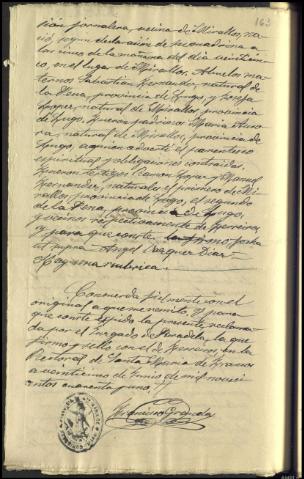 163
sión jornalera, vecina de Mirallos, na-
ció, según declaración de su madrina a
las cinco de la mañana del día veinticin-
co, en el lugar de Mirallos. Abuelos ma-
ternos Sebastián Hernández, natural de
la Pena, provincia de Lugo, y Josefa
López, natural de Mirallos, provincia
de Lugo. Fueron padrinos María Auro-
ra, natural de Mirallos, provincia de
Lugo, a quien advertí el parentesco
espiritual y obligaciones contraidas.
Fueron testigos Ramón López y Manuel
Hernández, naturales el primero de Mi-
rallos, provincia de Lugo, el segundo
de la Pena, provincia de Lugo,
y vecinos respectivamente de Ferreiros,
y para que conste lo firmo fecha
ut supra = Angel Vázquez Díaz =
Hay una rúbrica =
Concuerda fielmente con el
original a que me remito. Y para
que conste expido la presente reclama-
da por el Juzgado de Paradela, la que
firmo y sello con el de Ferreiros, en la
Rectoral de Santa María de
a veinticinco de Junio de mil noveci-
entos cuarenta y uno.
Francisco